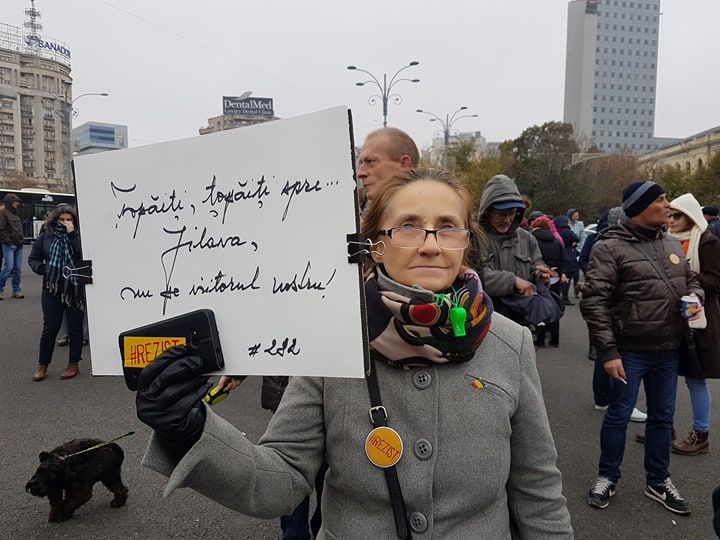 SANADOR
DentalMed
Luxury Dental Clinic
Țopăiți, țopăiți spre...
Jilava,
nu pe viitorul nostru!
#REZIST
#REZIST